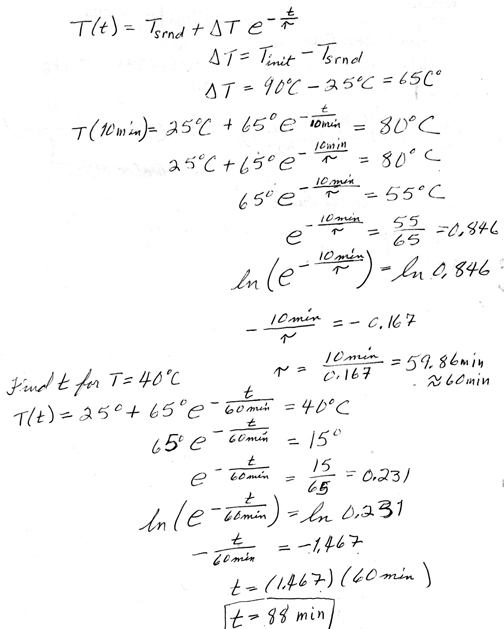 T(t) = Tsrnd + ΔT e^(-t/τ)
ΔT = Tinit - Tsrnd
ΔT = 90°C - 25°C = 65C°
T(10min) = 25°C + 65° e^(-t/10min) = 80°C
25°C + 65° e^(-10min/τ) = 80°C
65° e^(-10min/τ) = 55°C
e^(-10min/τ) = 55/65 = 0.846
ln(e^(-10min/τ)) = ln 0.846
-10min/τ = -0.167
τ = 10min/0.167 = 59.86min
≈60min
Find t for T=40°C
T(t) = 25° + 65° e^(-t/60min) = 40°C
65° e^(-t/60min) = 15°
e^(-t/60min) = 15/65 = 0.231
ln(e^(-t/60min)) = ln 0.231
-t/60min = -1.467
t = (1.467)(60min)
t = 88 min